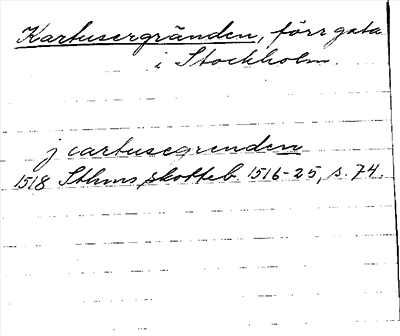 Kartusergränden, förr gata
i Stockholm.
j cartusegrenden
1518 Sthms skotteb 1516-25, s. 74.